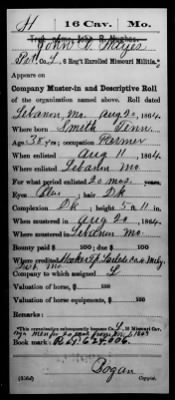 H 16 Cav. Mo.
John D. Mayes
Pvt., Co. L, 6 Reg't Enrolled Missouri Militia.*
Appears on
Company Muster-in and Descriptive Roll
of the organization named above. Roll dated
Lebanon Mo. Aug 20, 1864.
Where born Smith Tenn
Age 38 y'rs; occupation Farmer
When enlisted Aug 11, 1864.
Where enlisted Lebanon Mo
For what period enlisted 20 mos. years.
Eyes ; hair Dk
Complexion Dk; height 5 ft. 11 in.
When mustered in Aug 20, 1864.
Where mustered in Lebanon Mo.
Bounty paid $ 100; due $ 100
Where credited
Mo.
Company to which assigned L
Valuation of horse, $ 100
Valuation of horse equipments, $ 100
Remarks:
*This organization subsequently became Co. L, 16 Missouri Cav.
Book mark: R & P 624,006
Bogan
(356d) Copyist.